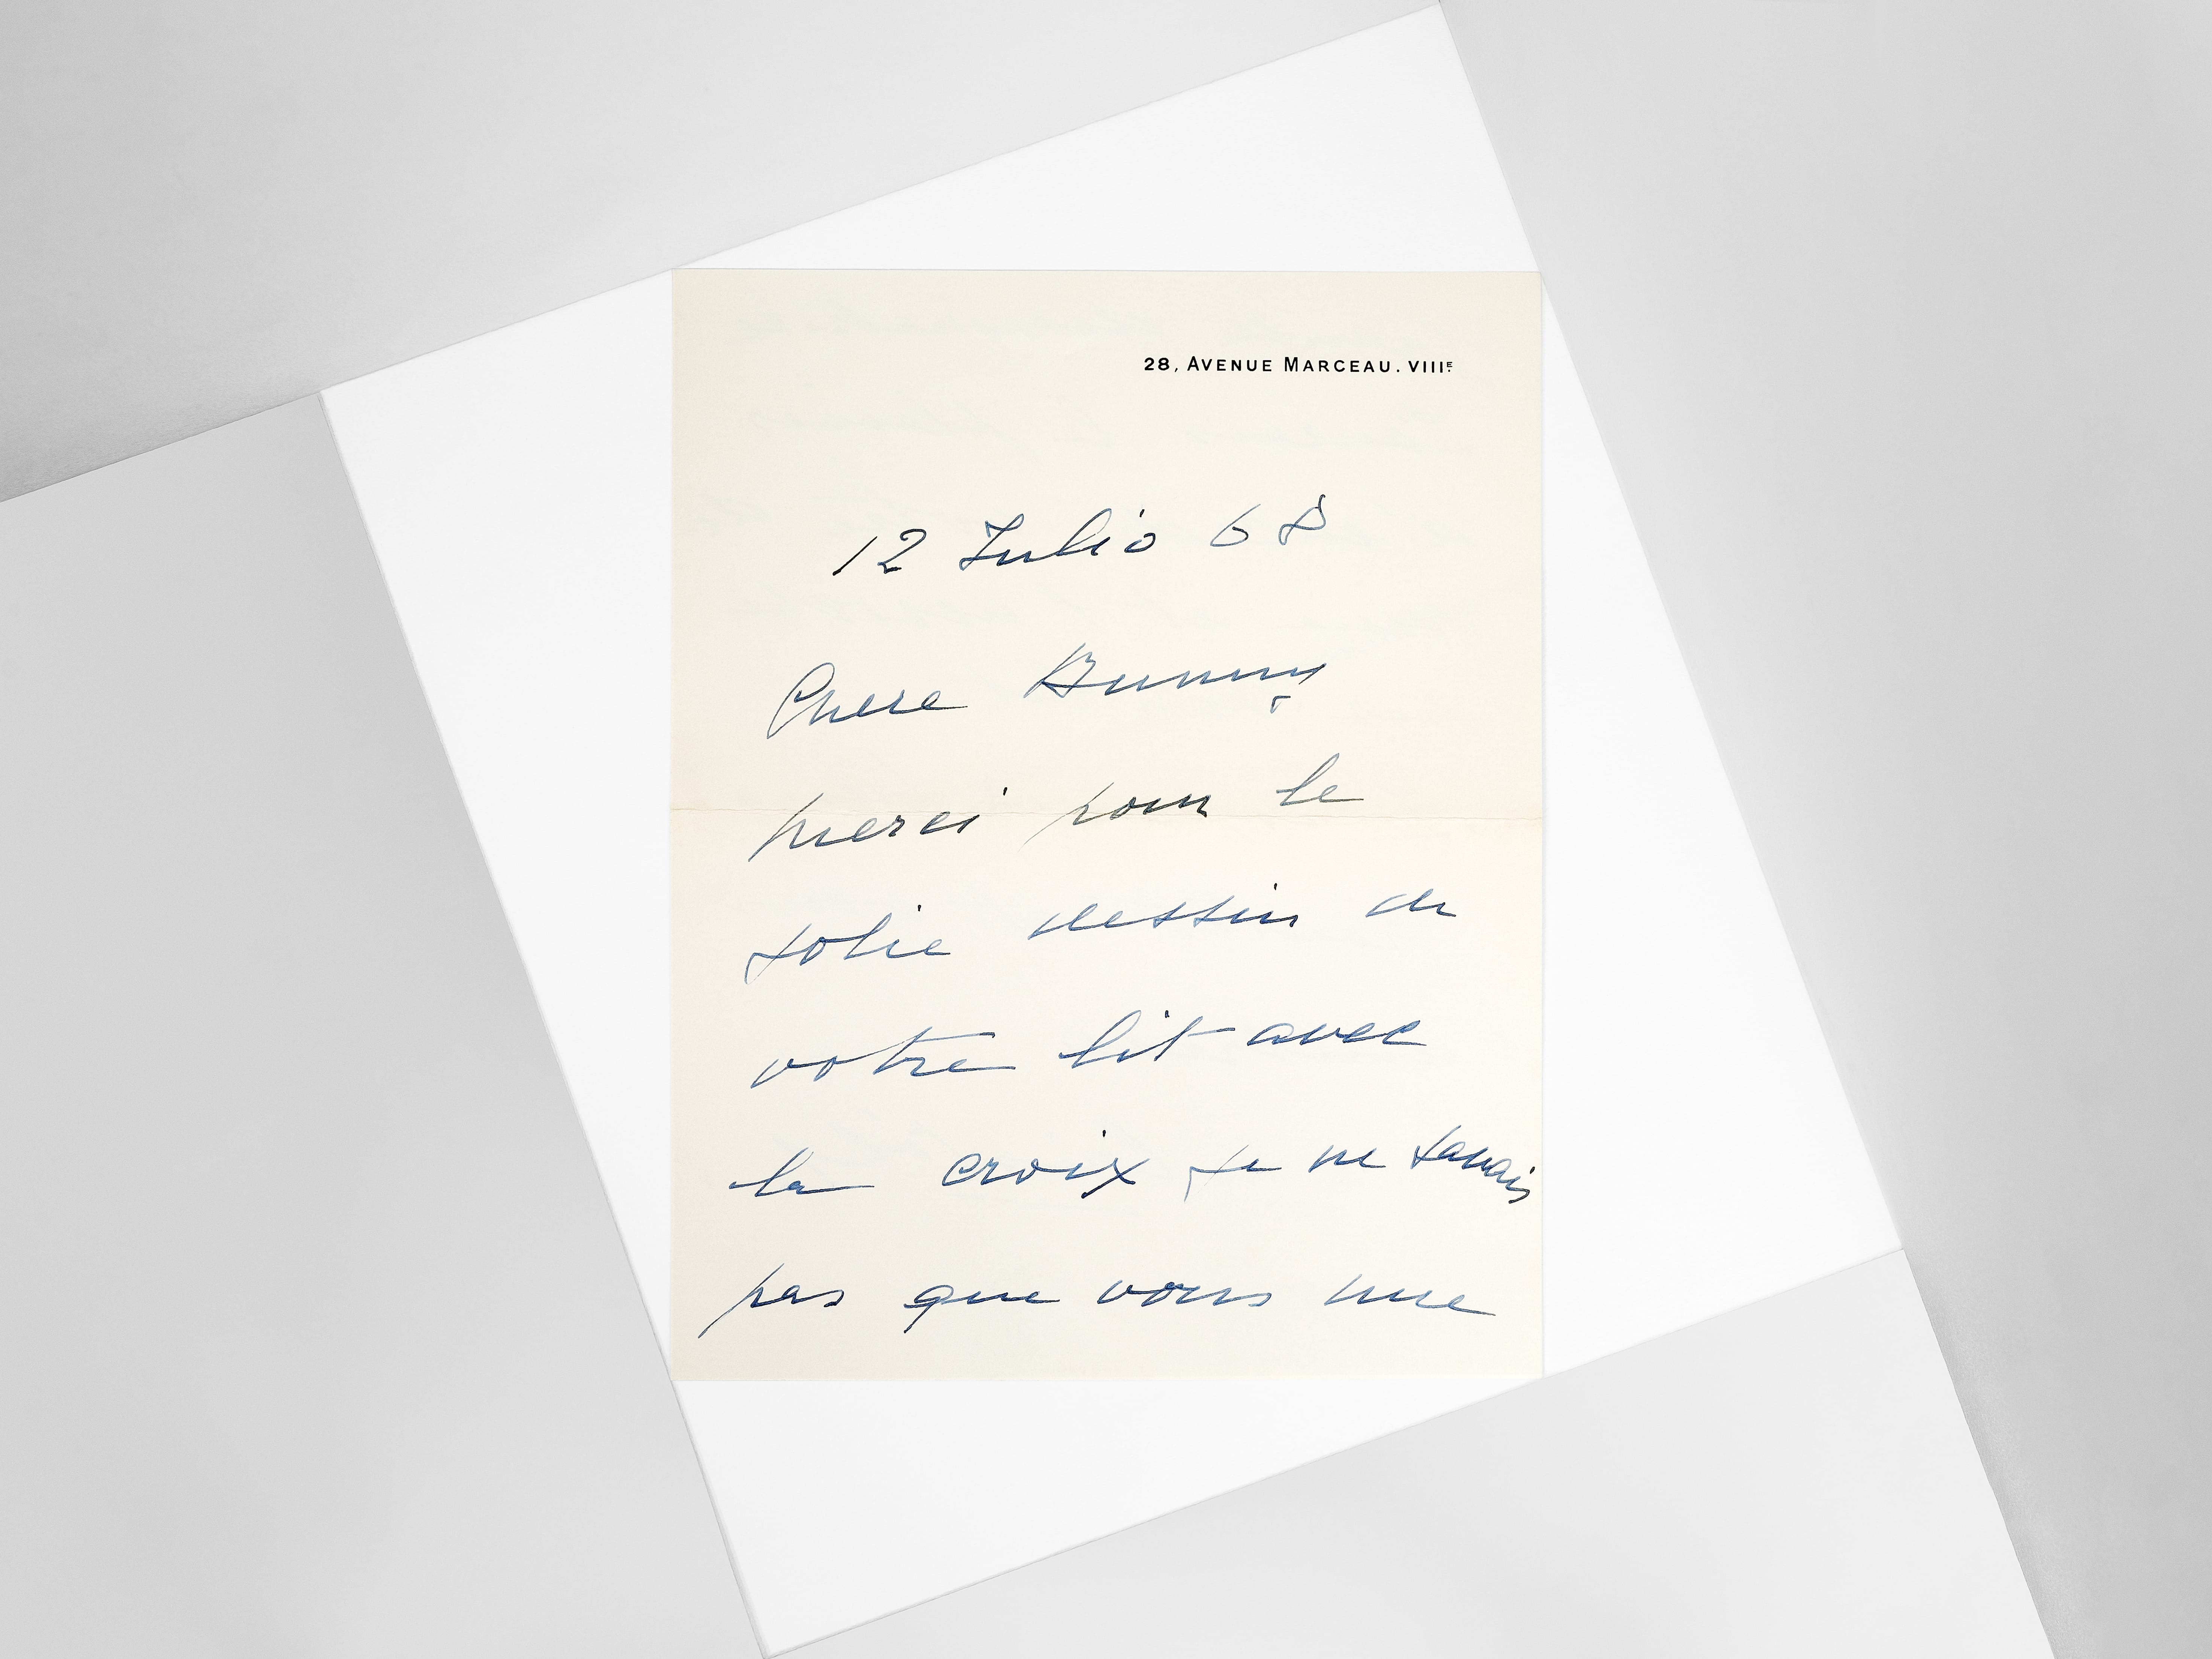 28, AVENUE MARCEAU. VIIIE.
12 Julio 68
Chere Bunny
merci pour le
jolie dessin de
votre lit avec
la croix je ne savais
pas que vous une